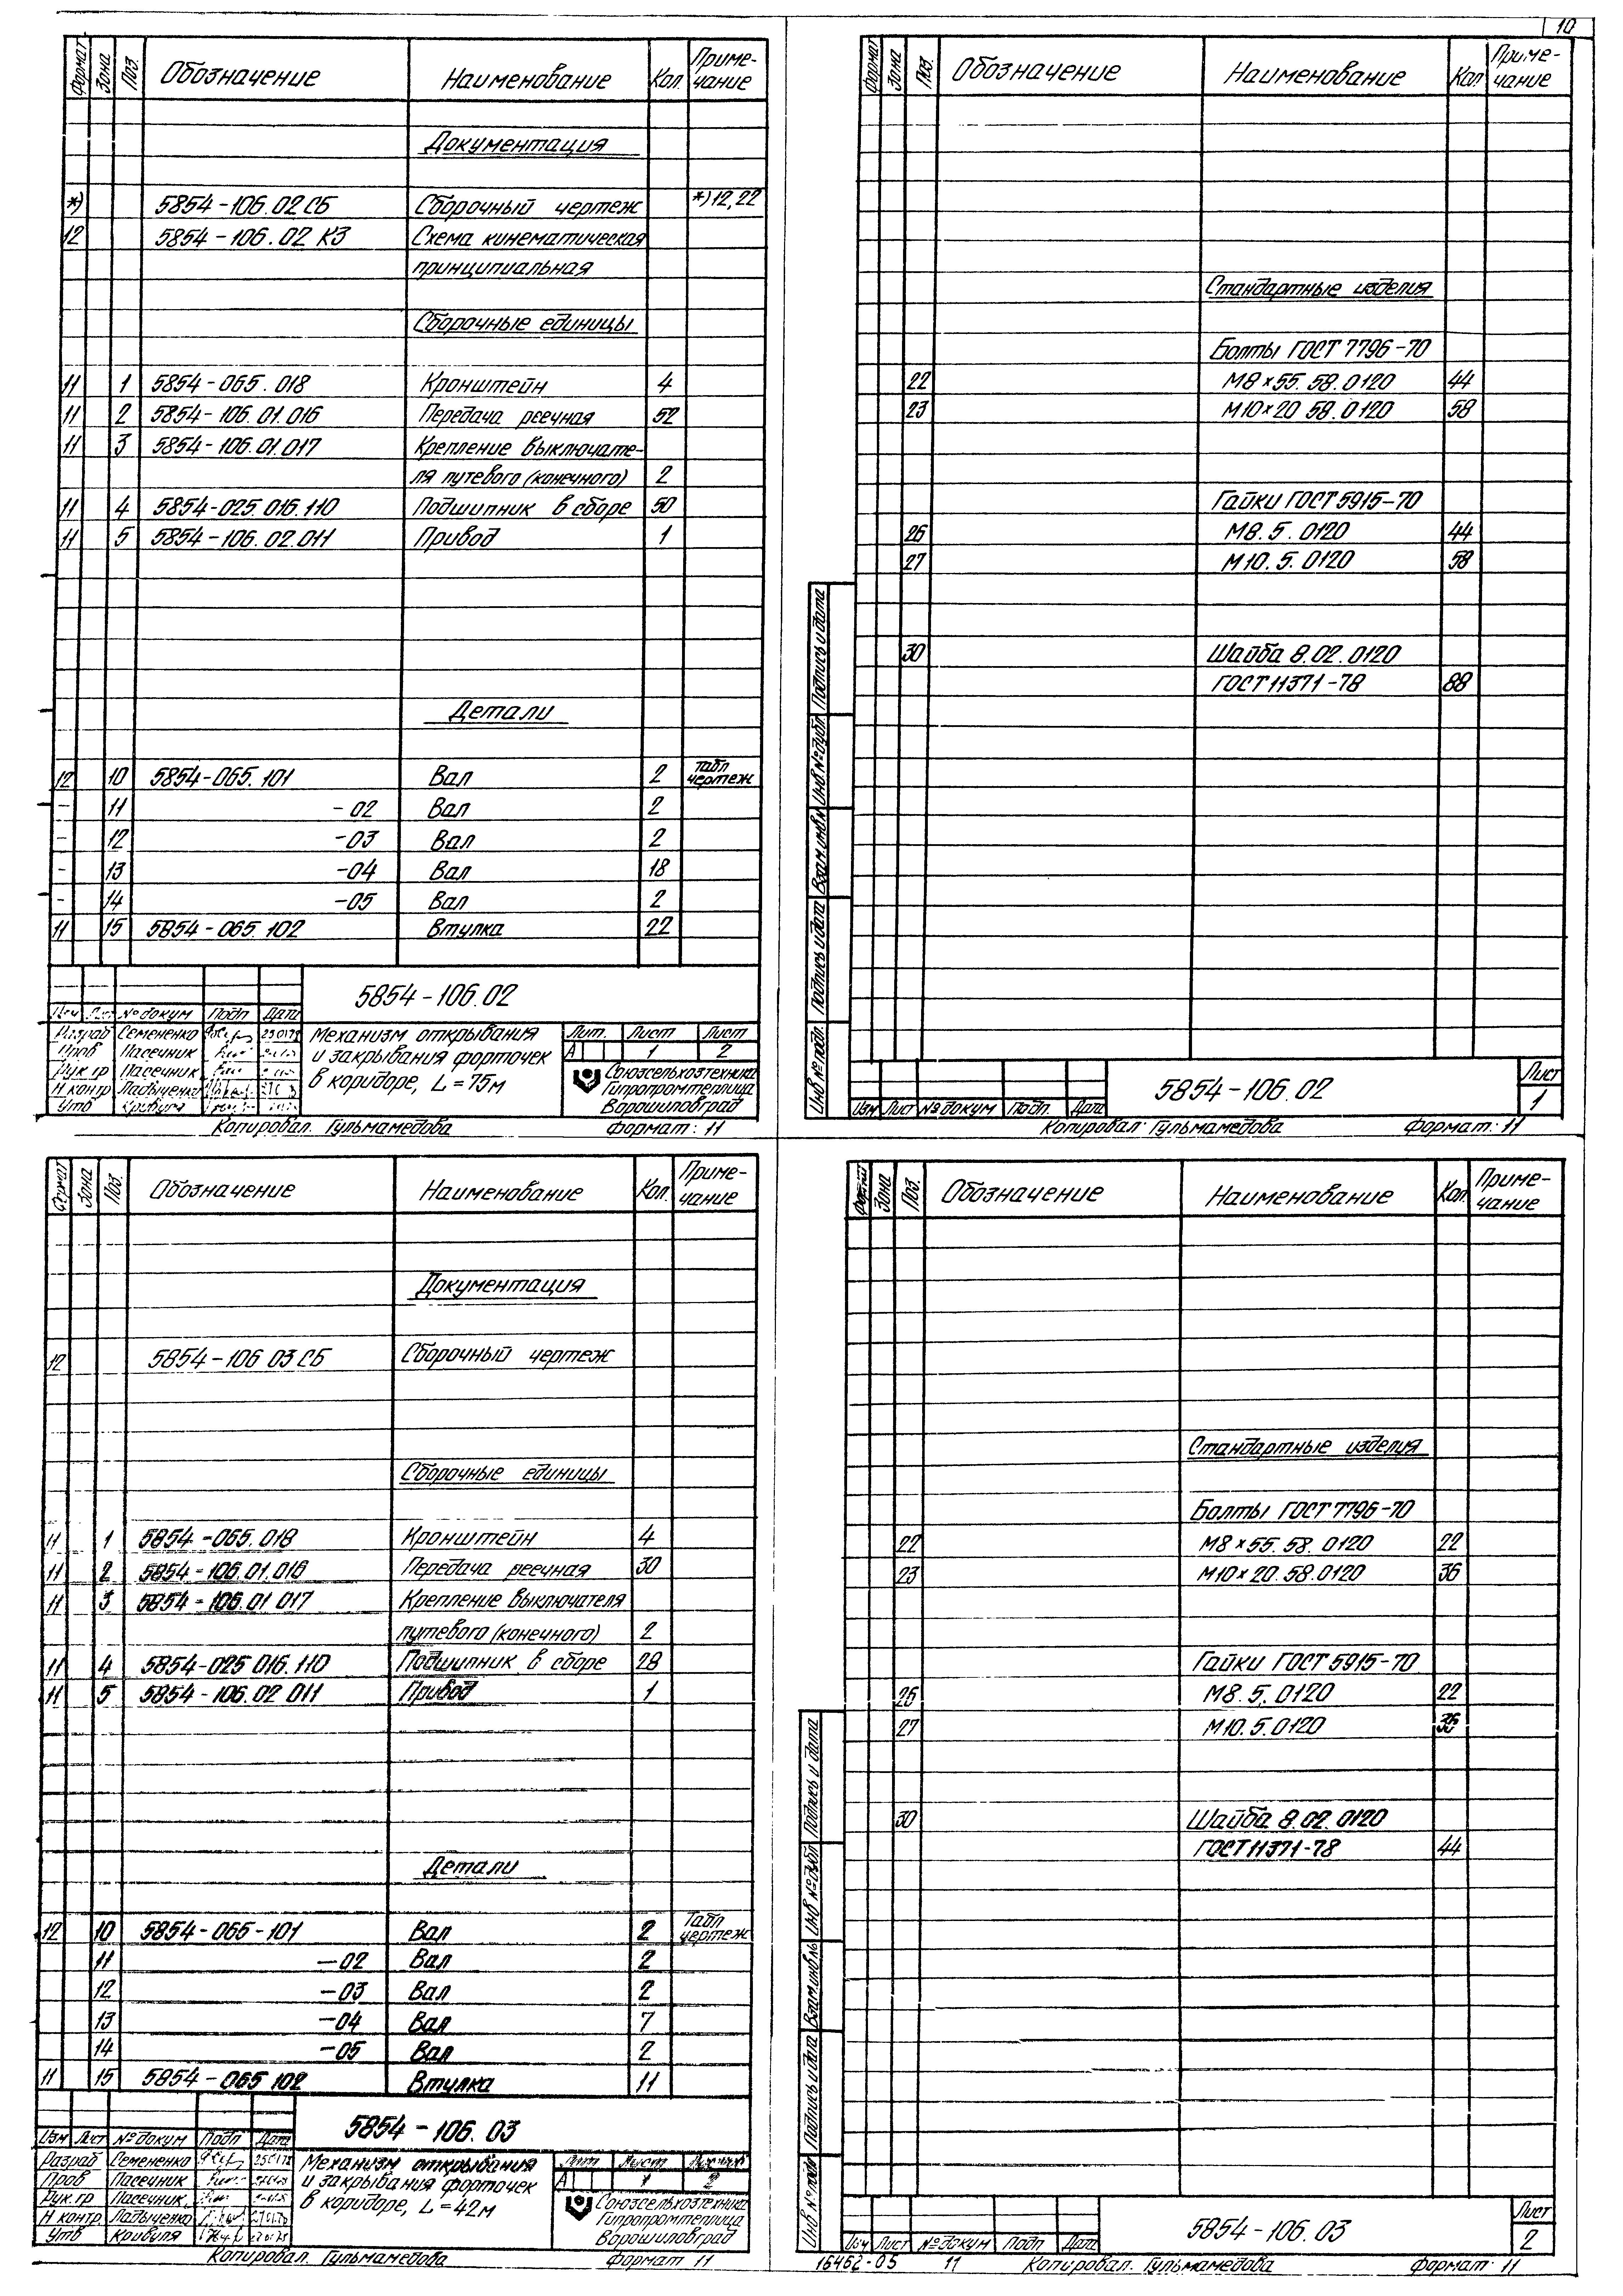 10
Формат Зона Поз. Обозначение Наименование Кол. Приме-
чание
Документация
*) 5854-106.02 СБ Сборочный чертеж *) 12, 22
12 5854-106.02 К3 Схема кинематическая
принципиальная
Сборочные единицы
11 1 5854-065.018 Кронштейн 4
11 2 5854-106.01.016 Передача реечная 52
11 3 5854-106.01.017 Крепление выключате-
ля путевого (конечного) 2
11 4 5854-025.016.110 Подшипник в сборе 50
11 5 5854-106.02.011 Привод 1
Детали
12 10 5854-065.101 Вал 2 табл
чертеж
- 11 -02 Вал 2
- 12 -03 Вал 2
- 13 -04 Вал 18
- 14 -05 Вал 2
11 15 5854-065.102 Втулка 22
5854-106.02
Изм Лист № докум Подп Дата
Разраб Семененко
Пров Пасечник
Рук.гр Пасечник
Н.контр Ладыченко
Утв Кривуля
Механизм открывания
и закрывания форточек
в коридоре, L=75м
Лит. Лист Лист
А 1 2
Союзсельхозтехника
Гипропромтеплица
Ворошиловград
Копировал. Гульмамедова Формат: 11
Формат Зона Поз. Обозначение Наименование Кол Приме-
чание
Стандартные изделия
Болты ГОСТ 7796-70
22 М8×55.58.0120 44
23 М10×20 58.0120 58
Гайки ГОСТ 5915-70
26 М8.5.0120 44
27 М10.5.0120 58
30 Шайба 8.02.0120
ГОСТ 11371-78 88
Инв № подл. Подпись и дата Взам.инв.№ Инв № дубл. Подпись и дата
5854-106.02
Лист
1
Изм Лист № докум Подп. Дата
Копировал: Гульмамедова Формат: 11
Формат Зона Поз. Обозначение Наименование Кол. Приме-
чание
Документация
12 5854-106 03 СБ Сборочный чертеж
Сборочные единицы
11 1 5854-065.018 Кронштейн 4
11 2 5854-106.01.016 Передача реечная 30
11 3 5854-106.01 017 Крепление выключателя
путевого (конечного) 2
11 4 5854-025 016.110 Подшипник в сборе 28
11 5 5854-106.02 011 Привод 1
Детали
12 10 5854-065-101 Вал 2 Табл
чертеж
11 -02 Вал 2
12 -03 Вал 2
13 -04 Вал 7
14 -05 Вал 2
11 15 5854-065 102 Втулка 11
5854-106.03
Изм Лист № докум Подп Дата
Разраб Семененко
Пров Пасечник
Рук.гр Пасечник
Н контр Ладыченко
Утв Кривуля
Механизм открывания
и закрывания форточек
в коридоре, L=42м
Лит Лист Листов
А 1 2
Союзсельхозтехника
Гипропромтеплица
Ворошиловград
Копировал. Гульмамедова Формат 11
Формат Зона Поз. Обозначение Наименование Кол Приме-
чание
Стандартные изделия
Болты ГОСТ 7796-70
22 М8×55.58.0120 22
23 М10×20.58.0120 36
Гайки ГОСТ 5915-70
26 М8.5.0120 22
27 М10.5.0120 36
30 Шайба 8.02.0120
ГОСТ 11371-78 44
Инв № подл Подпись и дата Взам.инв.№ Инв № дубл Подпись и дата
5854-106.03
Лист
2
Изм Лист № докум Подп Дата
16462-05 11 Копировал. Гульмамедова Формат: 11